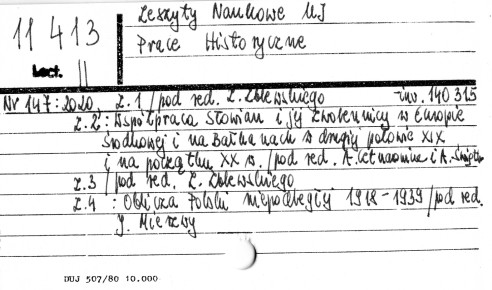 11 413
Lect. II
Zeszyty Naukowe UJ
Prace Historyczne
Nr 147:2020, z.1 /pod red. Z. Zblewskiego inv. 140315
z.2: Współpraca Słowian i jej zwolennicy w Europie
Środkowej i na Bałkanach w drugiej połowie XIX
i na początku XX w. /pod red. A. Cetnarowicza i A.
z.3 /pod red. Z. Zblewskiego
z.4 : Oblicza Polski niepodległej 1918-1939 /pod red.
J. Mierzwy
DUJ 507/80 10.000